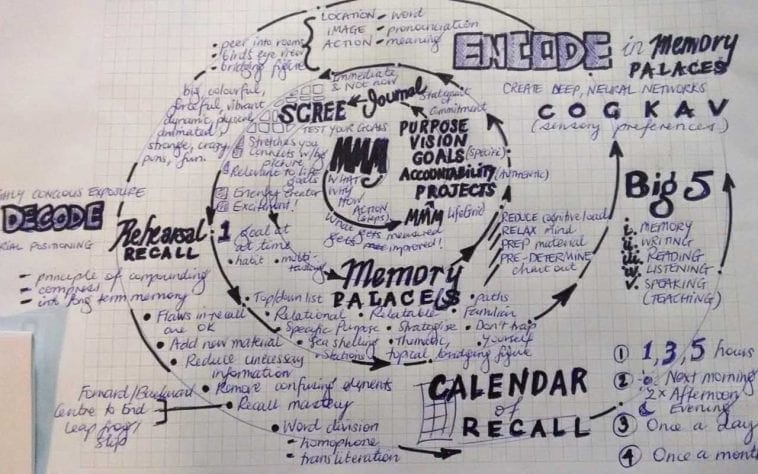 LOCATION - word
IMAGE - pronounciation
ACTION - meaning
• peer into rooms
• bird's eye view
• bridging figure
ENCODE in Memory
PALACES
CREATE DEEP, NEURAL NETWORKS
C O G K A V
(sensory preferences)
big, colourful,
forceful, vibrant
dynamic, physical,
animated,
strange, crazy
puns, fun.
Immediate,
& Not now
SCREE Journal
Stategput
Commitment
TEST YOUR GOALS
Stretches you
Connects w/ big
picture
Relevant to life
goals
Energy creator
Excitement!
MMM
WHAT
WHY
HOW
ACTION
(steps)
PURPOSE
VISION
GOALS (SPECIFIC)
ACCOUNTABILITY (AUTHENTIC)
PROJECTS
MMM LifeGrid
What gets measured
gets improved!
1 Goal at
at time
• habit • multi-
tracking
HLY CONCIOUS EXPOSURE
DECODE
RIAL POSITIONING
Rehearsal
RECALL
- principle of compounding
- compress
- into long term memory
REDUCE cognitive load
RELAX Mind
PREP material
PRE-DETERMINE
chart out
Big 5
i. MEMORY
ii. WRITING
iii. READING
iv. LISTENING
v. SPEAKING
(TEACHING)
Memory
PALACE(S)
• Top/down list • Relatable • paths
• Relational • Familiar
• Specific Purpose • Strategise • Don't trap
• Sea shelling • Thematic, yourself
• Stations topical bridging figure
• Flaws in recall
are OK
• Add new material
• Reduce unnecessary
information
• Remove confusing elements
• Recall mastery
Forward/Backward
Centre to End
Leap frog/
Skip
• Word division
- homophone
- transliteration
CALENDAR
of
RECALL
① 1, 3, 5 hours
② Next morning
2x Afternoon
Evening
③ Once a day
④ Once a mont